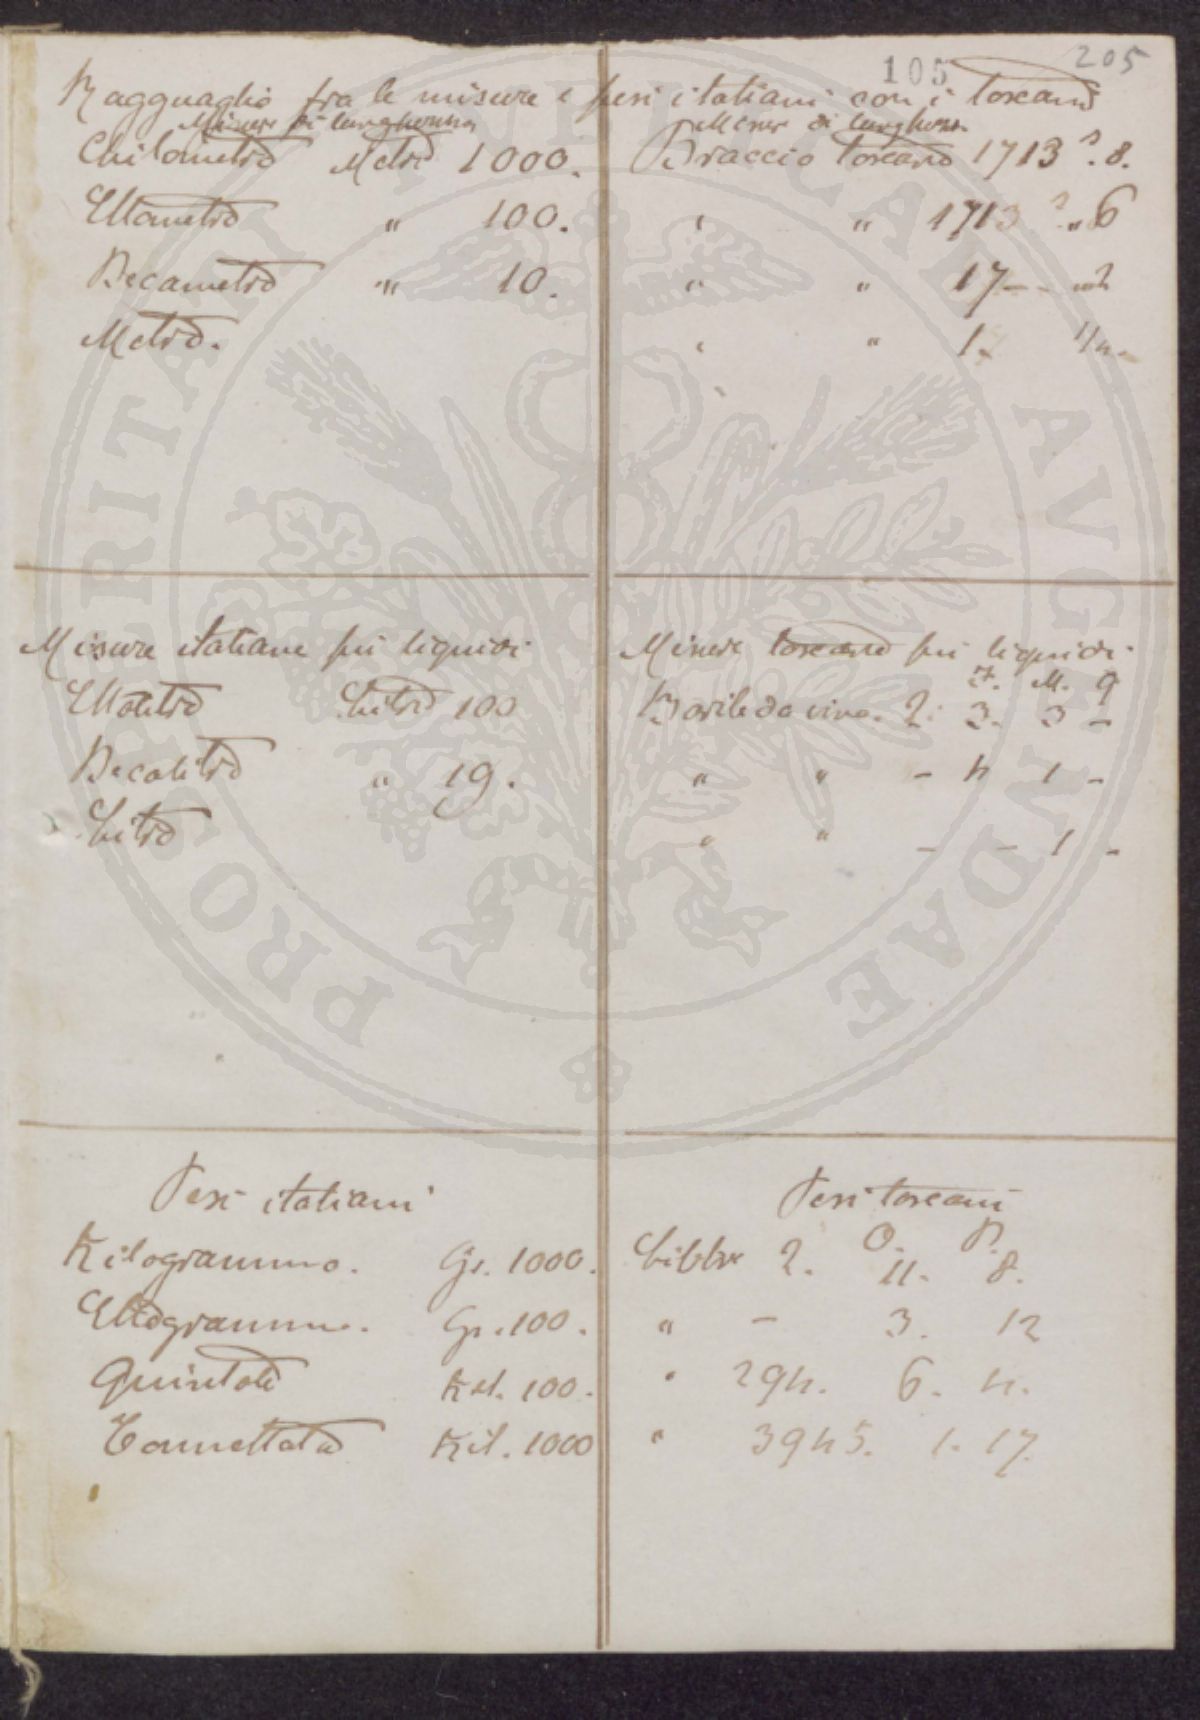 105 205
Ragguaglio fra le misure e pesi italiani con i toscani
Misure di lunghezza Misure di lunghezza
Chilometro Metri 1000. Braccio toscano 1713 8.
Ettometro " 100. " " 1713 6
Decametro " 10. " " 17 -
Metro. " " 1. 1/4.
Misure italiane pei liquidi Misure toscane pei liquidi
F. M. Q
Ettolitro Litri 100 Barile da vino. 2: 3. 3 -
Decalitro " 10. " " - 4 1 -
Litro " " - - 1 -
PROSPERITATI PVBLICAE AVGENDAE
Pesi italiani Pesi toscani
O. D.
Kilogrammo. Gr. 1000. Libbre 2. 11. 8.
Ettogrammo. Gr. 100. " - 3. 12
Quintale Kil. 100. " 294. 6. 4.
Tonnellata Kil. 1000 " 3945. 1. 17.